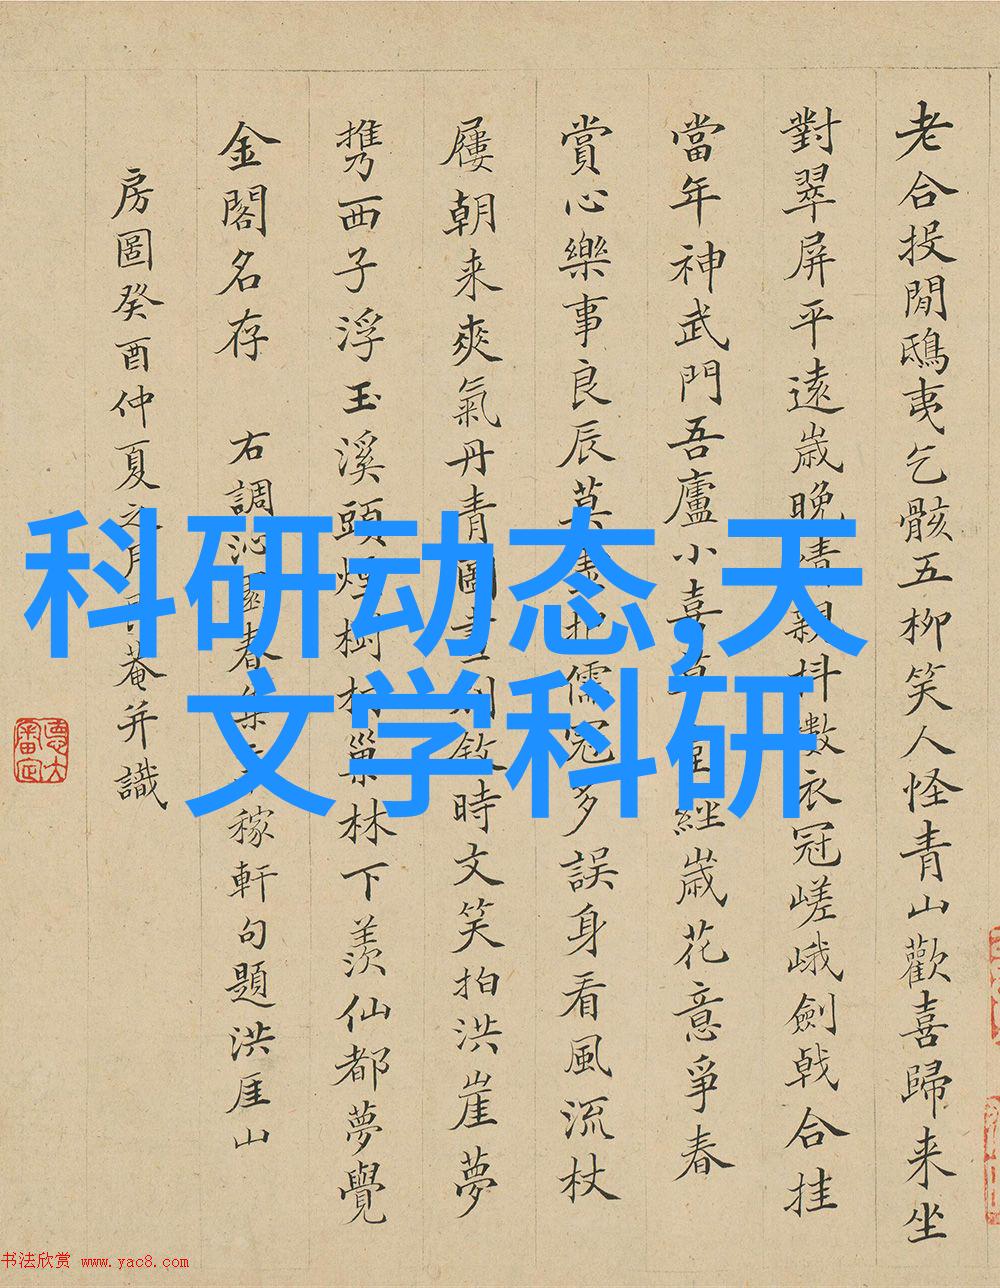 老合投閒鴟夷乞骸五柳笑人怪青山歡喜歸来坐
對翠屏平遠歲晩情親抖數衣冠嵯峨劍戟合挂
當年神武門吾廬小喜經歲花意爭春
賞心樂事良辰莫儒冠多誤身看風流杖
屨朝来爽氣丹青圖畫敘時文笑拍洪崖夢
携西子浮玉溪頭煙樹村巢林下羨仙都夢覺
金閣名存 右調沁園春集稼軒句題洪厓山
房圖癸酉仲夏之月菴并識
科研动态,天
文学科研
书法欣赏 www.yac8.com